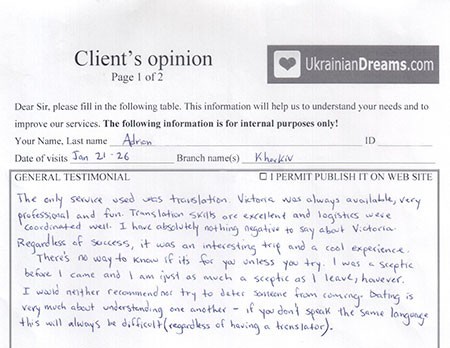 Client's opinion
Page 1 of 2
UkrainianDreams.com
Dear Sir, please fill in the following table. This information will help us to understand your needs and to
improve our services. The following information is for internal purposes only!
Your Name, Last name Adron ID
Date of visits Jan 21-26 Branch name(s) Kharkiv
GENERAL TESTIMONIAL ☐ I PERMIT PUBLISH IT ON WEB SITE
The only service used was translation. Victoria was always available, very
professional and fun. Translation skills are excellent and logistics were
coordinated well. I have absolutely nothing negative to say about Victoria.
Regardless of success, it was an interesting trip and a cool experience.
There's no way to know if its for you unless you try. I was a sceptic
before I came and I am just as much a sceptic as I leave, however.
I would neither recommend nor try to deter someone from coming. Dating is
very much about understanding one another - if you don't speak the same language
this will always be difficult (regardless of having a translator).